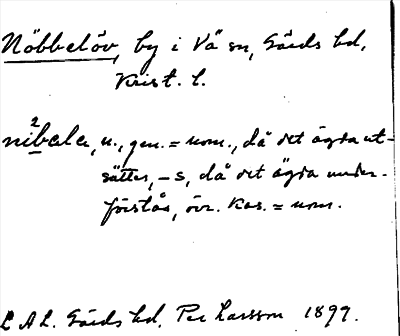 Nöbbelöv, by i Vä sn, Gärds hd,
Krist. l.
ni²bala, n., gen. = nom., då det ägda ut-
sättes, -s, då det ägda under-
förstås, övr. kas. = nom.
L A L. Gärds hd. Per Larsson 1899.